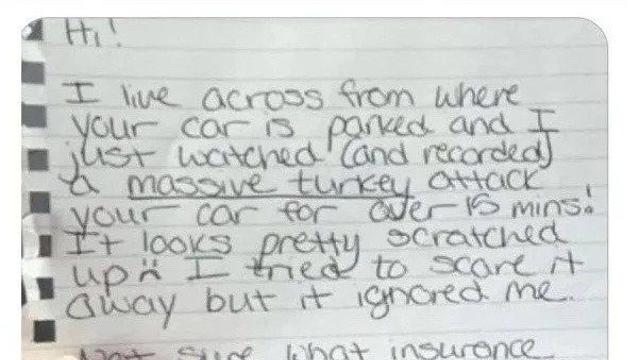 Hi!
I live across from where
your car is parked and I
just watched (and recorded)
a massive turkey attack
your car for over 15 mins!
It looks pretty scratched
up :( I tried to scare it
away but it ignored me.
Not sure what insurance